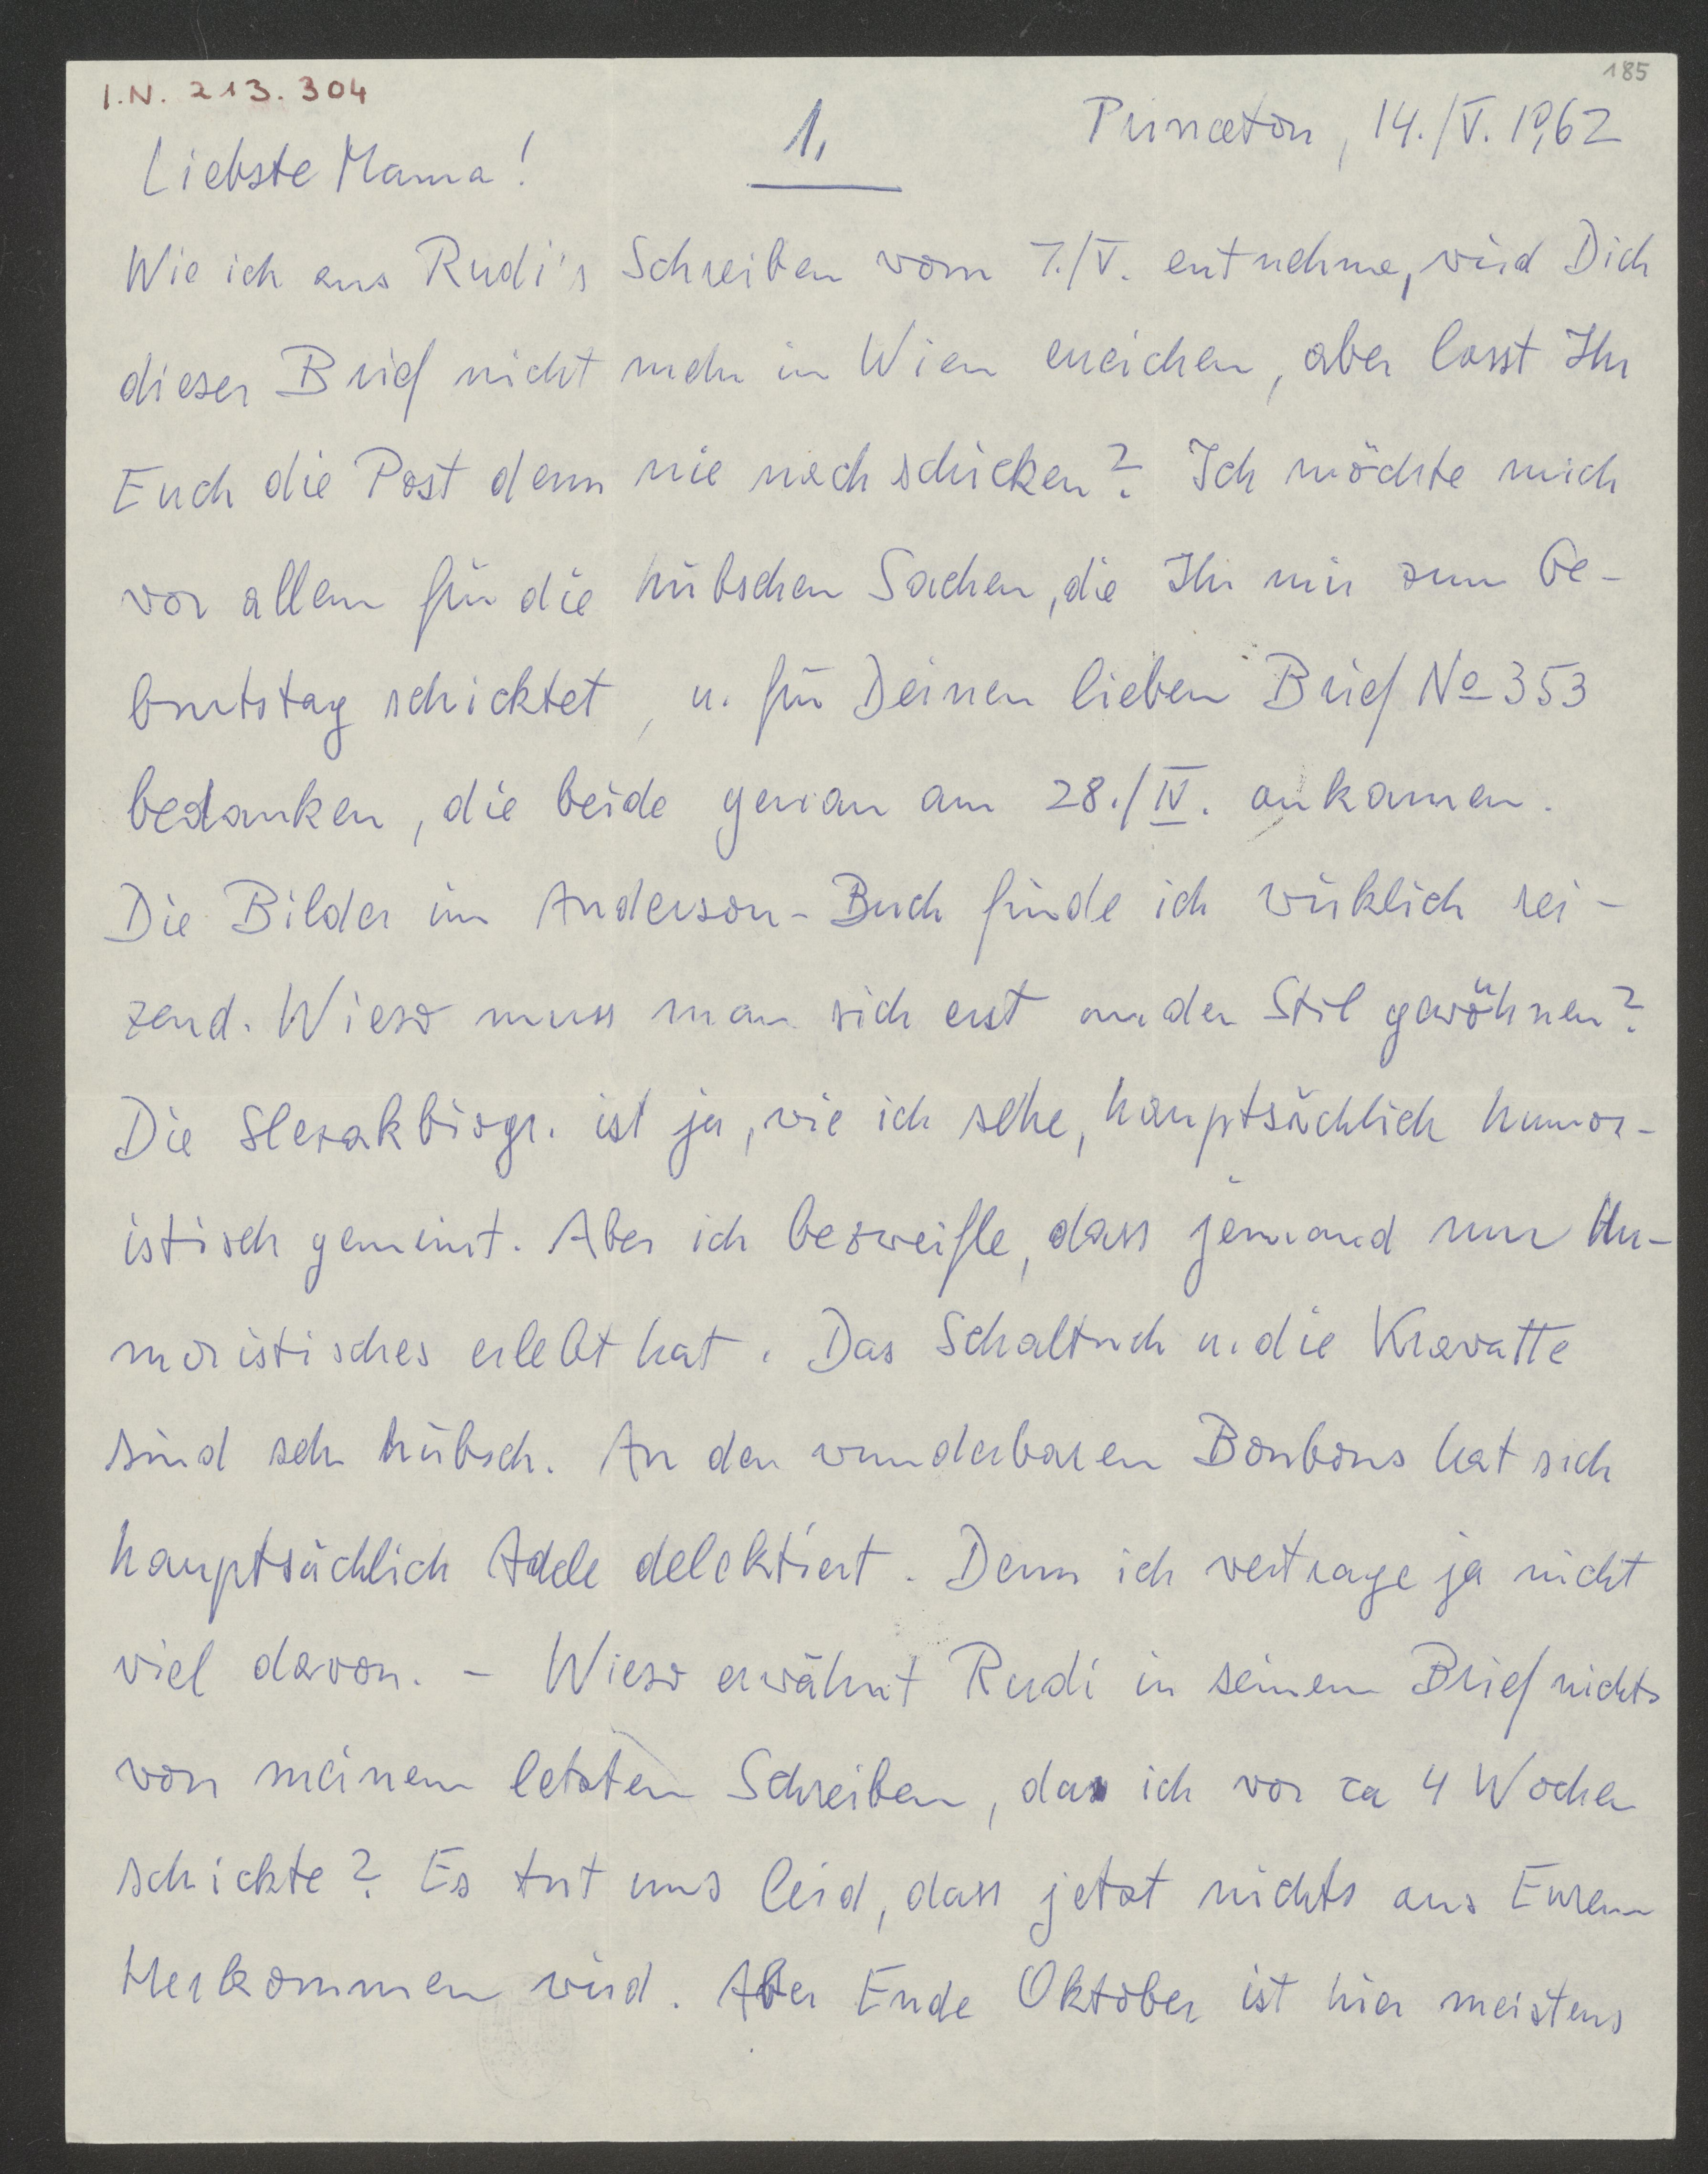 I.N. 213.304
185
1.
Princeton, 14./V. 1962
Liebste Mama!
Wie ich aus Rudi's Schreiben vom 7./V. entnehme, wird Dich
dieser Brief nicht mehr in Wien erreichen, aber lasst Ihr
Euch die Post denn nie nachschicken? Ich möchte mich
vor allem für die hübschen Sachen, die Ihr mir zum Ge-
burtstag schicktet, u. für Deinen lieben Brief No 353
bedanken, die beide genau am 28./IV. ankamen.
Die Bilder im Anderson-Buch finde ich wirklich rei-
zend. Wieso muss man sich erst an den Stil gewöhnen?
Die Slezakbiogr. ist ja, wie ich sehe, hauptsächlich humor-
istisch gemeint. Aber ich bezweifle, dass jemand nur Hu-
moristisches erlebt hat. Das Schaltuch u. die Kravatte
sind sehr hübsch. An den wunderbaren Bonbons hat sich
hauptsächlich Adele delektiert. Denn ich vertrage ja nicht
viel davon. – Wieso erwähnt Rudi in seinem Brief nichts
von meinem letzten Schreiben, das ich vor ca 4 Wochen
schickte? Es tut uns leid, dass jetzt nichts aus Eurem
Herkommen wird. Aber Ende Oktober ist hier meistens